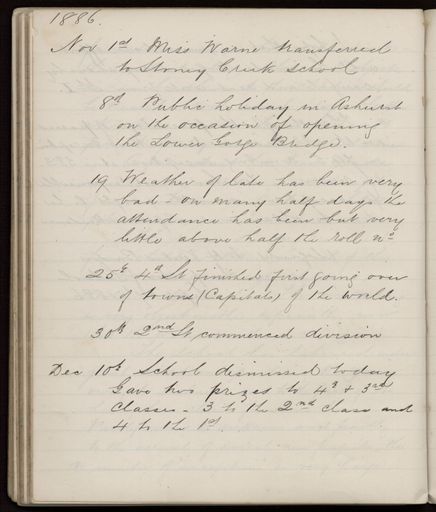 1886.
Nov 1st Miss Warne transferred
to Stoney Creek School
8th Public holiday in Ashurst
on the occasion of opening
the Lower Gorge Bridge.
19 Weather of late has been very
bad - on many half days the
attendance has been but very
little above half the roll no
25th 4th St finished first going over
of towns (Capitals) of the world.
30th 2nd St commenced division
Dec 10th School dismissed today
Gave two prizes to 4th & 3rd
Classes - 3 to the 2nd class and
4 to the 1st.